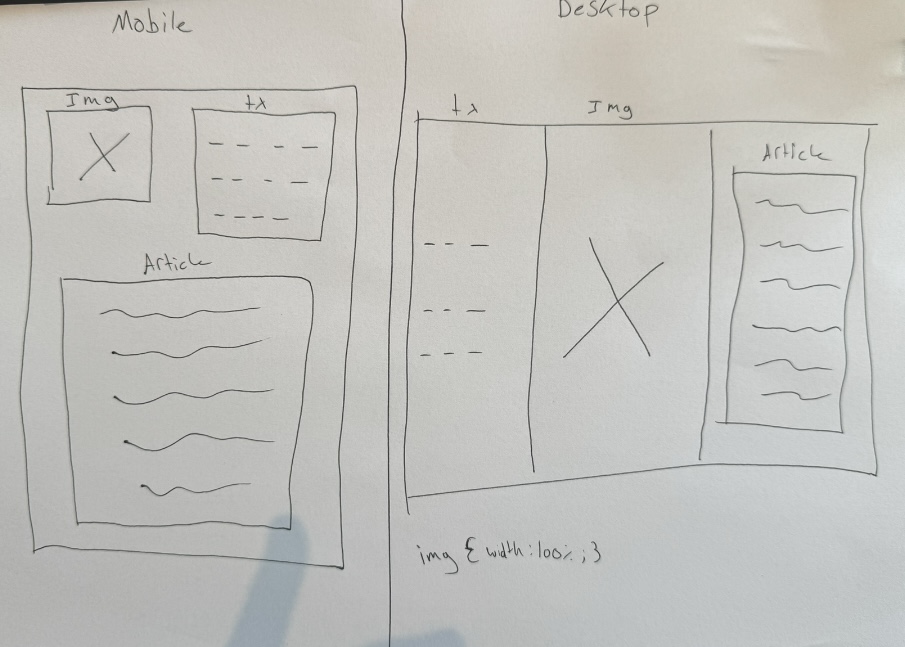 Mobile
Img
tx
Article
Desktop
tx
Img
Article
img { width:100%; }